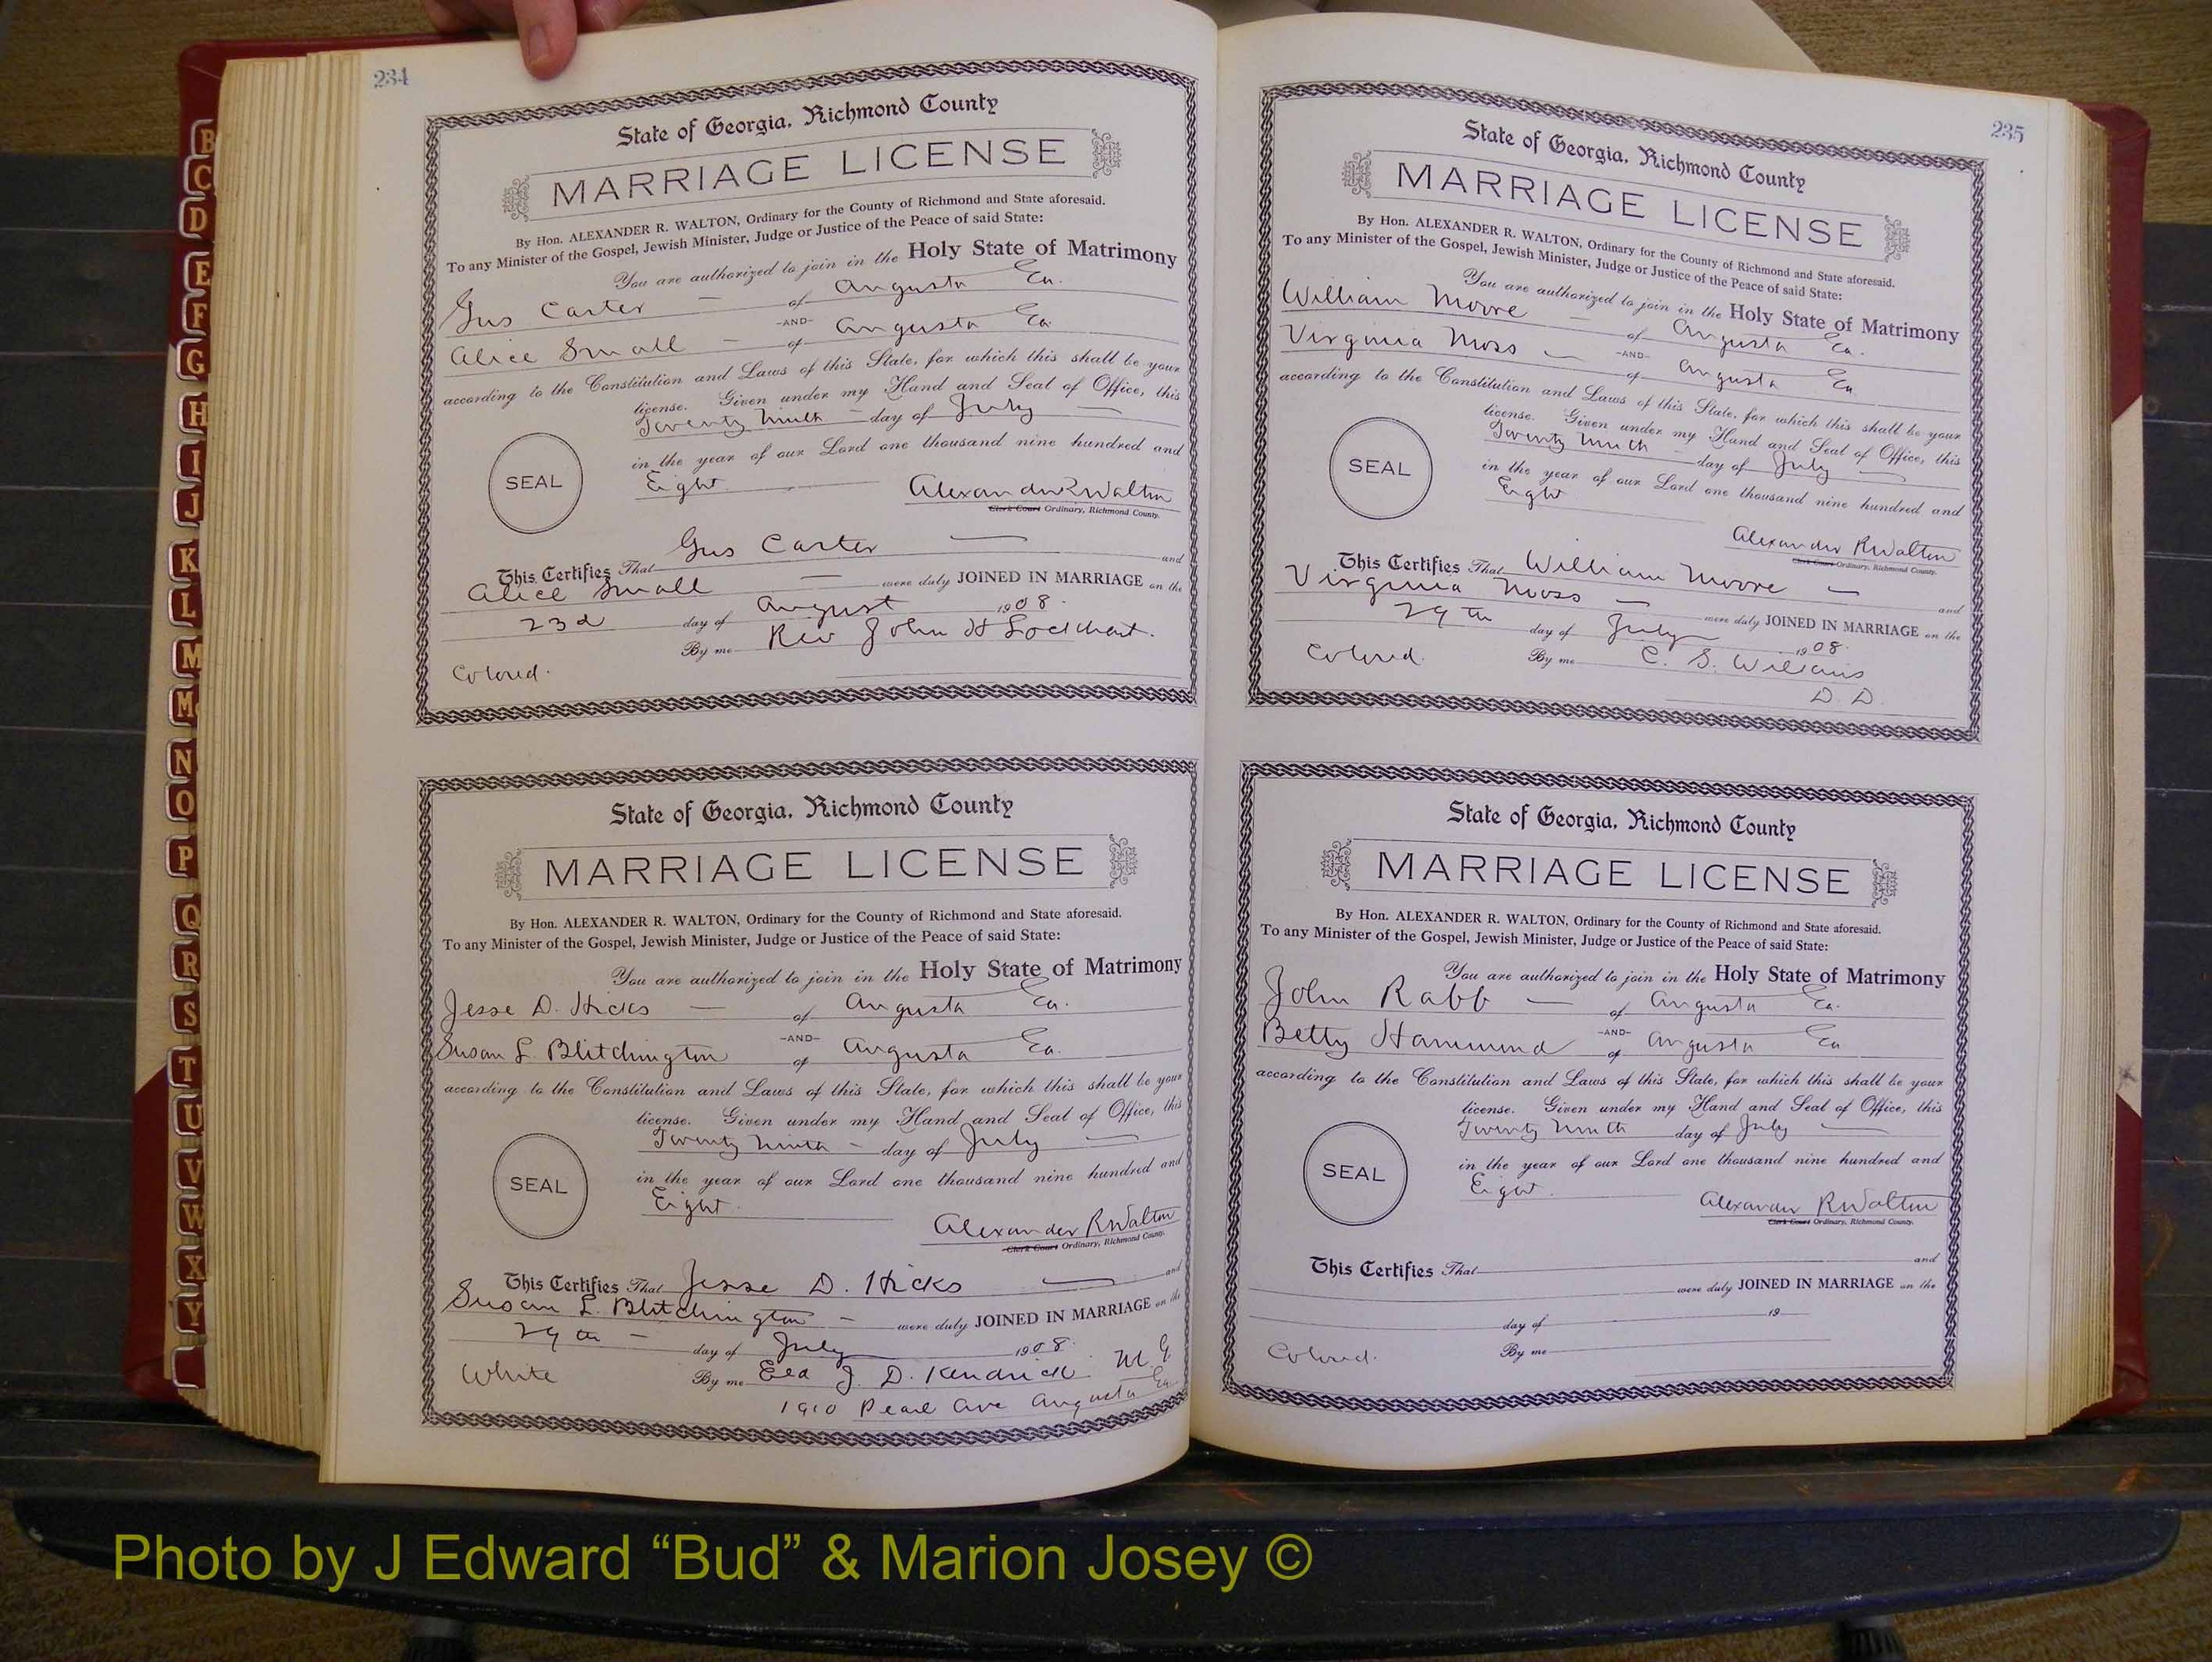 234
State of Georgia, Richmond County
MARRIAGE LICENSE
By Hon. ALEXANDER R. WALTON, Ordinary for the County of Richmond and State aforesaid.
To any Minister of the Gospel, Jewish Minister, Judge or Justice of the Peace of said State:
You are authorized to join in the Holy State of Matrimony
Gus Carter — of Augusta Ga.
-AND-
Alice Small — of Augusta Ga
according to the Constitution and Laws of this State, for which this shall be your
license. Given under my Hand and Seal of Office, this
Twenty Ninth – day of July
SEAL
in the year of our Lord one thousand nine hundred and
Eight
Alexander R Walton
Clerk Court Ordinary, Richmond County.
This Certifies That Gus Carter — and
Alice Small — were duly JOINED IN MARRIAGE on the
23d day of August 1908.
By me Rev John H Lockhart.
Colored.
State of Georgia, Richmond County
MARRIAGE LICENSE
By Hon. ALEXANDER R. WALTON, Ordinary for the County of Richmond and State aforesaid.
To any Minister of the Gospel, Jewish Minister, Judge or Justice of the Peace of said State:
You are authorized to join in the Holy State of Matrimony
Jesse D. Hicks — of Augusta Ga.
-AND-
Susan L. Blitchington of Augusta Ga.
according to the Constitution and Laws of this State, for which this shall be your
license. Given under my Hand and Seal of Office, this
Twenty Ninth – day of July
SEAL
in the year of our Lord one thousand nine hundred and
Eight.
Alexander R Walton
Clerk Court Ordinary, Richmond County.
This Certifies That Jesse D. Hicks — and
Susan L. Blitchington – were duly JOINED IN MARRIAGE on the
29th – day of July 1908.
White By me Eld J. D. Kendrick M. G.
1910 Pearl Ave Augusta Ga.
235
State of Georgia, Richmond County
MARRIAGE LICENSE
By Hon. ALEXANDER R. WALTON, Ordinary for the County of Richmond and State aforesaid.
To any Minister of the Gospel, Jewish Minister, Judge or Justice of the Peace of said State:
You are authorized to join in the Holy State of Matrimony
William Moore — of Augusta Ga.
-AND-
Virginia Moss — of Augusta Ga
according to the Constitution and Laws of this State, for which this shall be your
license. Given under my Hand and Seal of Office, this
Twenty Ninth – day of July
SEAL
in the year of our Lord one thousand nine hundred and
Eight
Alexander R Walton
Clerk Court Ordinary, Richmond County.
This Certifies That William Moore — and
Virginia Moss — were duly JOINED IN MARRIAGE on the
29th day of July 1908.
Colored. By me C. S. Wilkins
D. D.
State of Georgia, Richmond County
MARRIAGE LICENSE
By Hon. ALEXANDER R. WALTON, Ordinary for the County of Richmond and State aforesaid.
To any Minister of the Gospel, Jewish Minister, Judge or Justice of the Peace of said State:
You are authorized to join in the Holy State of Matrimony
John Rabb — of Augusta Ga.
-AND-
Betty Hammond of Augusta Ga
according to the Constitution and Laws of this State, for which this shall be your
license. Given under my Hand and Seal of Office, this
Twenty Ninth day of July
SEAL
in the year of our Lord one thousand nine hundred and
Eight.
Alexander R Walton
Clerk Court Ordinary, Richmond County.
This Certifies That and
were duly JOINED IN MARRIAGE on the
day of 19
Colored. By me
B
C
D
E
F
G
H
I
J
K
L
M
Mc
N
O
P
Q
R
S
T
U
V
W
X
Y
Photo by J Edward “Bud” & Marion Josey ©